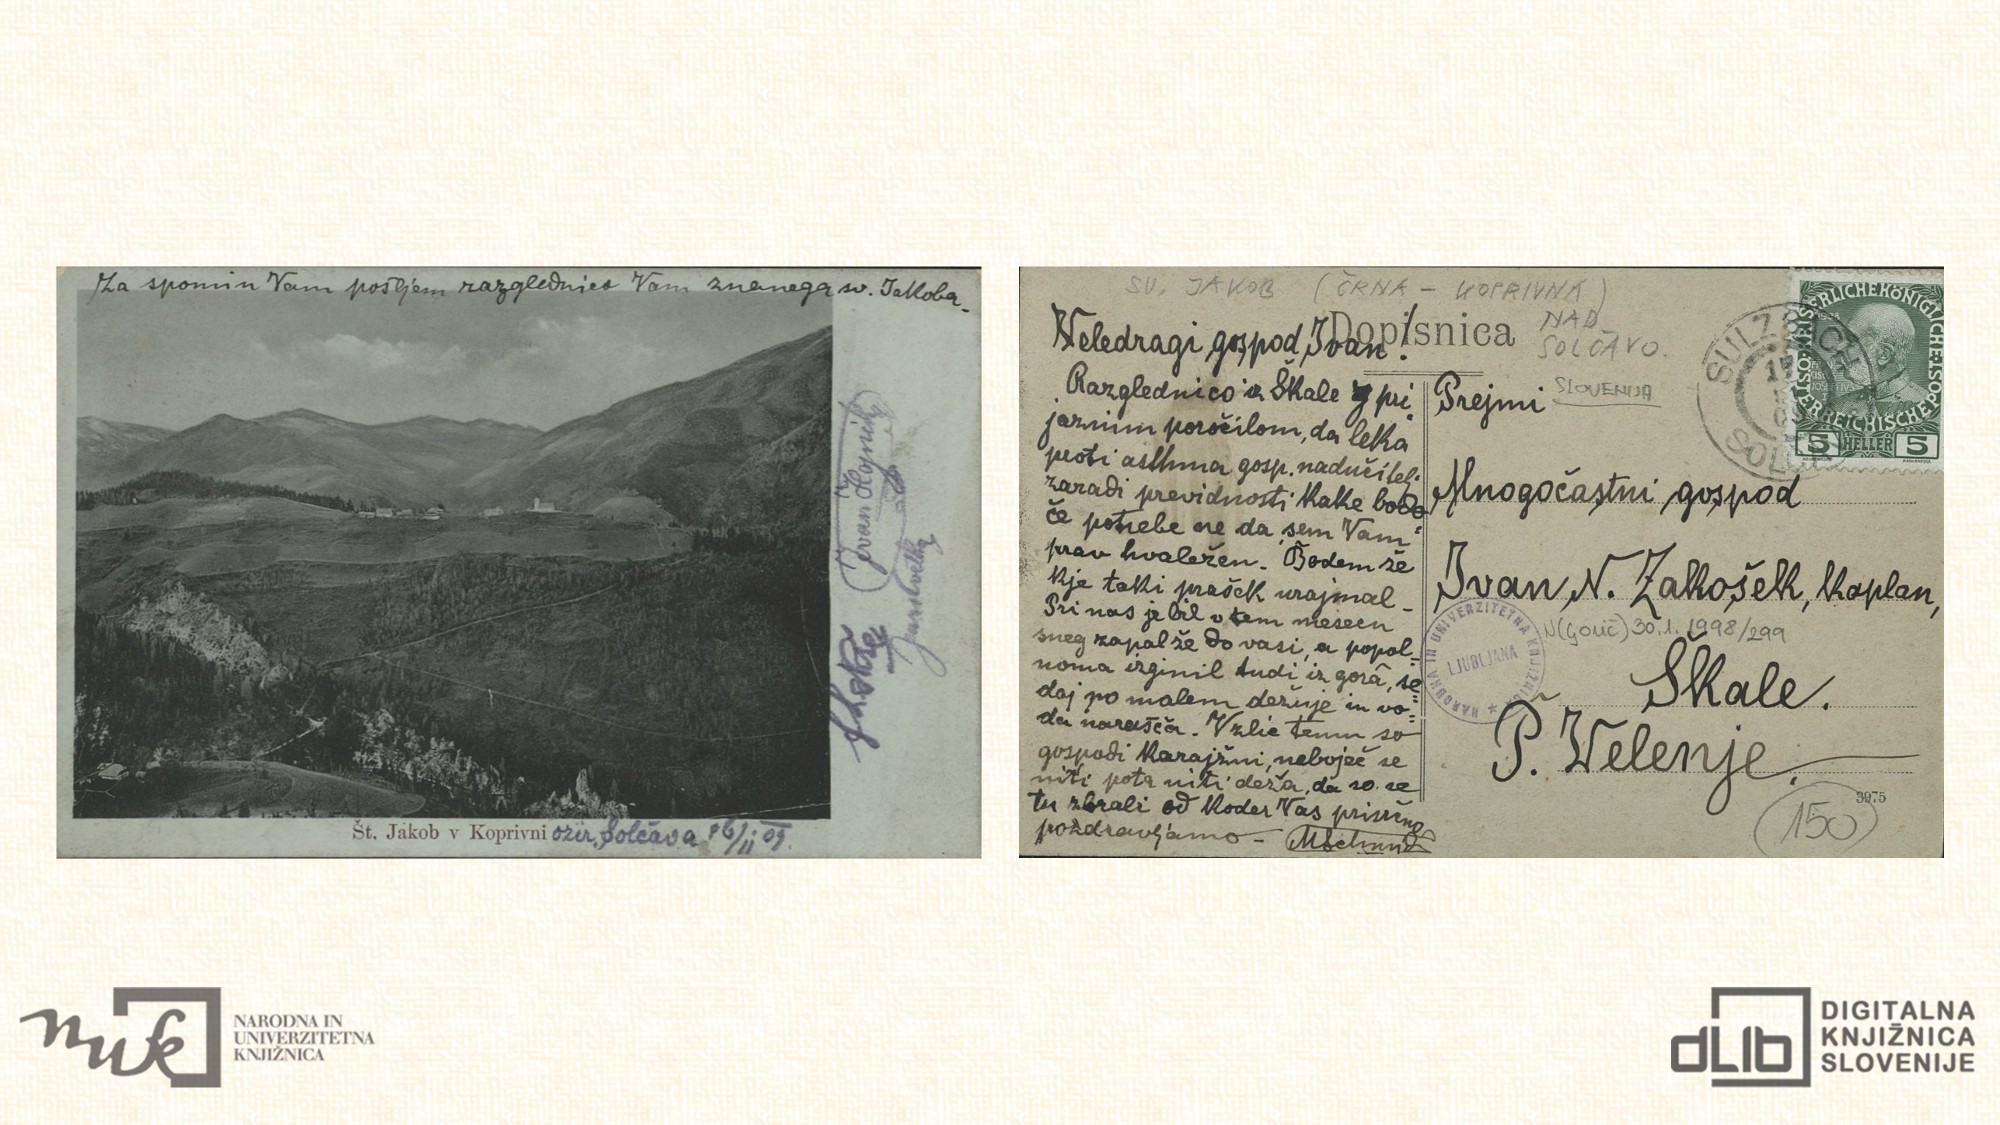 Za spomin Vam pošljem razglednico Vam znanega sv. Jakoba.
Ivan Hojnik
Št. Jakob v Koprivni ozir. Solčava 16/II 09.
SV. JAKOB (ČRNA - KOPRIVNA)
NAD
SOLČAVO.
SLOVENIJA
Dopisnica
Veledragi gospod Ivan!
Razglednico iz Škale s pri
jaznim poročilom, da leka
proti asthma gosp. nadučitelj
zaradi previdnosti kake bodo
če potrebe ne da, sem Vam
prav hvaležen. Bodem že
kje taki prašek urajmal-
Pri nas je bil v tem mesecu
sneg zapal že do vasi, a popol-
noma izginil tudi iz gorâ, se
daj po malem dežuje in vo-
da narašča. Vzlic temu so
gospodi Karajžni, neboječ se
niti pota niti deža, da so se
tu zbrali od koder Vas prisrčno
pozdravljamo -
Prejmi
Mnogočastni gospod
Ivan N. Zakošek, kaplan,
Škale.
P. Velenje.
N(Gorič) 30.1.1998/299
NARODNA IN UNIVERZITETNA KNJIŽNICA
LJUBLJANA
SULZBACH
17
SOL
KAISERLICHE KÖNIGLICHE ÖSTERREICHISCHE POST
5 HELLER 5
3975
150
nuk
NARODNA IN
UNIVERZITETNA
KNJIŽNICA
dLib
DIGITALNA
KNJIŽNICA
SLOVENIJE